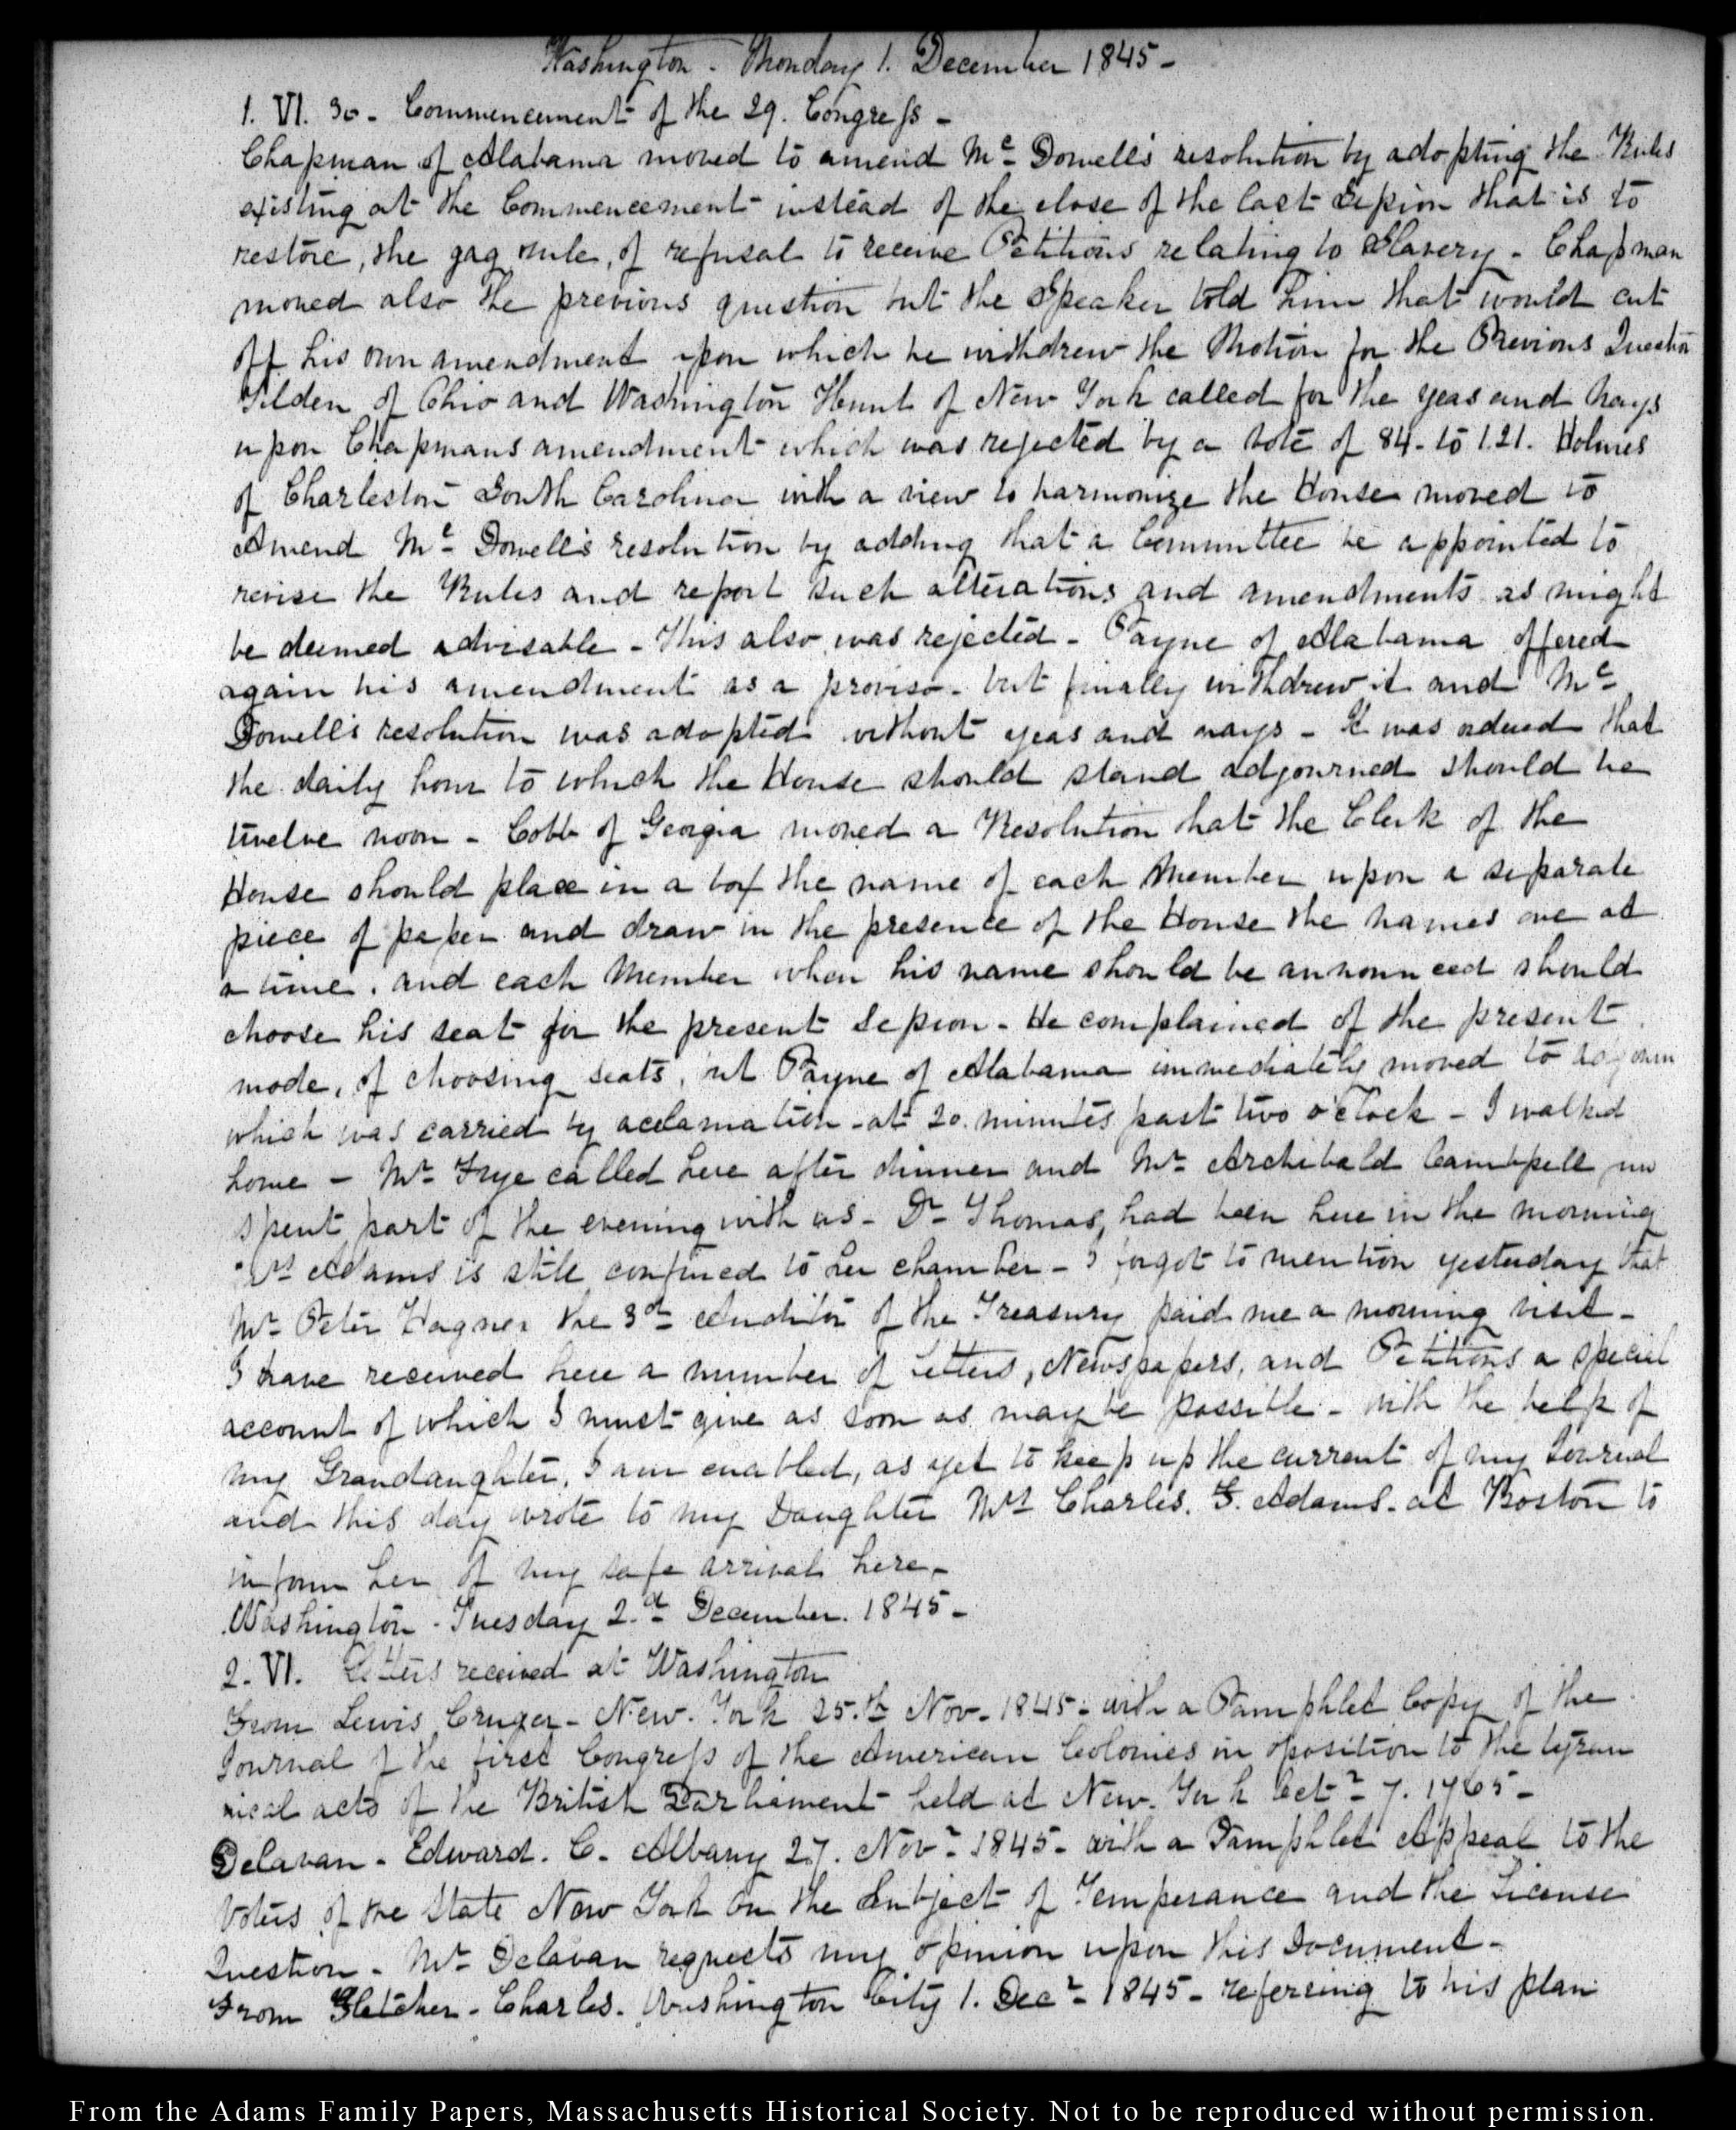 Washington - Monday 1. December 1845 -
1. VI. 30 - Commencement of the 29. Congress -
Chapman of Alabama moved to amend Mc Dowell's resolution by adopting the Rules
existing at the Commencement instead of the close of the last Session that is to
restore, the gag rule, of refusal to receive Petitions relating to Slavery - Chapman
moved also the previous question but the Speaker told him that would cut
off his own amendment upon which he withdrew the Motion for the Previous Question
Tilden of Ohio and Washington Hunt of New York called for the yeas and nays
upon Chapmans amendment which was rejected by a vote of 84 - to 121. Holmes
of Charleston South Carolina with a view to harmonize the House moved to
Amend Mc Dowell's resolution by adding that a Committee be appointed to
revise the Rules and report such alterations and amendments as might
be deemed advisable - This also was rejected - Payne of Alabama offered
again his amendment as a proviso - but finally withdrew it and Mc
Dowell's resolution was adopted without yeas and nays - It was ordered that
the daily hour to which the House should stand adjourned should be
twelve noon - Cobb of Georgia moved a Resolution that the Clerk of the
House should place in a box the name of each Member upon a separate
piece of paper and draw in the presence of the House the names one at
a time, and each Member when his name should be announced should
choose his seat for the present Session - He complained of the present
mode, of choosing seats, but Payne of Alabama immediately moved to adjourn
which was carried by acclamation - at 20 minutes past two o'Clock - I walked
home - Mr Frye called here after dinner and Mr Archibald Cambpell
spent part of the evening with us - Dr Thomas, had been here in the morning
Mrs Adams is still confined to her chamber - I forgot to mention yesterday that
Mr Peter Hagner the 3d Auditor of the Treasury paid me a morning visit -
I have received here a number of Letters, Newspapers, and Petitions a special
account of which I must give as soon as may be possible - with the help of
my Grandaughter, I am enabled, as yet to keep up the current of my Journal
and this day wrote to my Daughter Mrs Charles. F. Adams - at Boston to
inform her of my safe arrival here -
Washington - Tuesday 2.d December. 1845 -
2. VI. Letters received at Washington
From Lewis Cruger - New. York 25.th Nov - 1845 - with a Pamphlet Copy of the
Journal of the first Congress of the American Colonies in oposition to the tyran
nical acts of the British Parliament held at New. York Octr 7. 1765 -
Delavan - Edward. C. Albany 27. Novr 1845 - with a Pamphlet Appeal to the
Voters of the State New York on the Subject of Temperance and the License
Question - Mr Delavan requests my opinion upon this Document -
From Fletcher - Charles. Washington City 1. Decr 1845 - referring to his plan
From the Adams Family Papers, Massachusetts Historical Society. Not to be reproduced without permission.